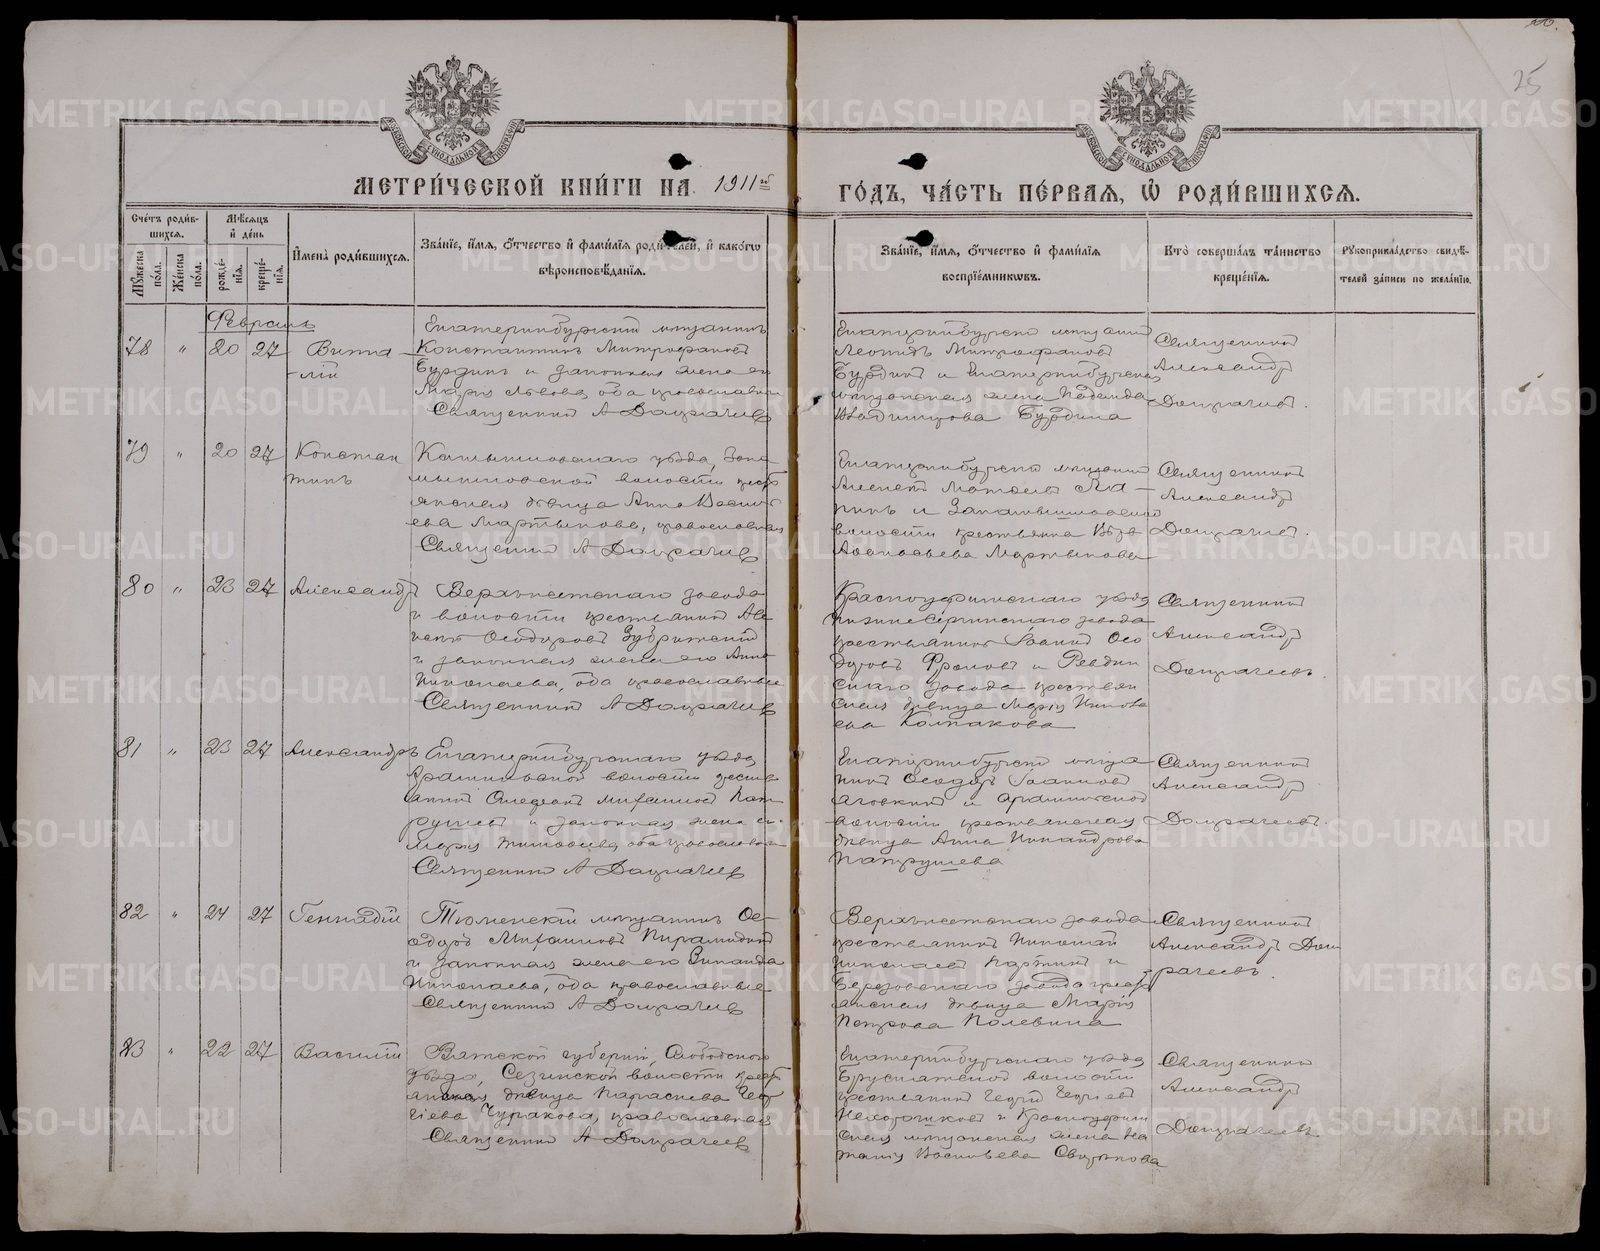 25
МЕТРИ́ЧЕСКОЙ КНИ́ГИ НА 1911 го́
ГО́ДЪ, ЧА́СТЬ ПЕ́РВАЯ, Ѡ҆ РОДИ́ВШИХСЯ.
Сче́тъ роди́в-
шихся.
Мꙋ́жеска по́ла.
Же́нска по́ла.
Мѣ́сяцъ и҆ де́нь
рожде́-нія.
креще́-нія.
И҆мена̀ роди́вшихся.
Зва́нїе, и҆́мя, ѻ҆́тчество и҆ фами́лїя роди́телей, и҆ како́гѡ
вѣроисповѣ́данїя.
Зва́нїе, и҆́мя, ѻ҆́тчество и҆ фами́лїя
воспрїе́мникѡвъ.
Кто̀ соверша́лъ та́инство
креще́нїя.
Рꙋкоприкла́дство свидѣ́-
телей за́писи по жела́нїю.
Февраль
78 " 20 27 Вита-
лій
Екатеринбургскій мѣщанинъ
Константинъ Митрофановъ
Бурдинъ и законная жена его
Марія Львова, оба православные
Священникъ А Домрачевъ
Екатеринбургскій мѣщанинъ
Леонидъ Митрофановъ
Бурдинъ и Екатеринбургская
мѣщанская жена Надежда
Владимірова Бурдина
Священникъ
Александръ
Домрачевъ.
79 " 20 27 Констан
тинъ
Камышловскаго уѣзда, Зака
мышловской волости крест
янская дѣвица Анна Васил
ева Мартынова, православная
Священникъ А Домрачевъ
Екатеринбургскій мѣщанинъ
Алексѣй Матвѣевъ
и Закамышловской
волости крестьянка
Аѳанасьева Мартынова
Священникъ
Александръ
Домрачевъ.
80 " 23 27 Александръ
Верхъисетскаго завода
и волости крестьянинъ Але
ксѣй Ѳеодоровъ Зубрижскій
и законная жена его Анна
Николаева, оба православные
Священникъ А Домрачевъ
Красноуфимскаго уѣзда
Нижнесергинскаго завода
крестьянинъ Іоаннъ Ѳео
доровъ Фроловъ и Ревдин
скаго завода крестьян
ская дѣвица Марія Никола
ева Колпакова
Священникъ
Александръ
Домрачевъ.
81 " 23 27 Александръ
Екатеринбургскаго уѣзда
Арамильской волости крестья
нинъ Михаиловъ Пат
рушевъ и законная жена его
Марія Тимоѳеева, оба православные
Священникъ А Домрачевъ
Екатеринбургскій мѣща
нинъ Ѳеодоръ Іоанновъ
и Арамильской
волости крестьянская
дѣвица Анна Никандрова
Патрушева
Священникъ
Александръ
Домрачевъ.
82 " 24 27 Геннадій
Тюменскій мѣщанинъ Ѳе-
одоръ Михаиловъ Пирамидинъ
и законная жена его Зинаида
Николаева, оба православные
Священникъ А Домрачевъ
Верхъисетскаго завода
крестьянинъ Николай
Николаевъ Партинъ и
Березовскаго завода крест
янская дѣвица Марія
Петрова Полевина
Священникъ
Александръ Дом
рачевъ.
83 " 22 27 Василій
Вятской губерніи, Слободского
уѣзда, Сезинской волости крест
янская дѣвица Параскева Геор
гіева Чуракова, православная
Священникъ А Домрачевъ
Екатеринбургскаго уѣзда
Бруснятской волости
крестьянинъ Георгій Георгіевъ
и Красноуфим
ская мѣщанская жена На
талія Васильева
Священникъ
Александръ
Домрачевъ
METRIKI.GASO-URAL.RU